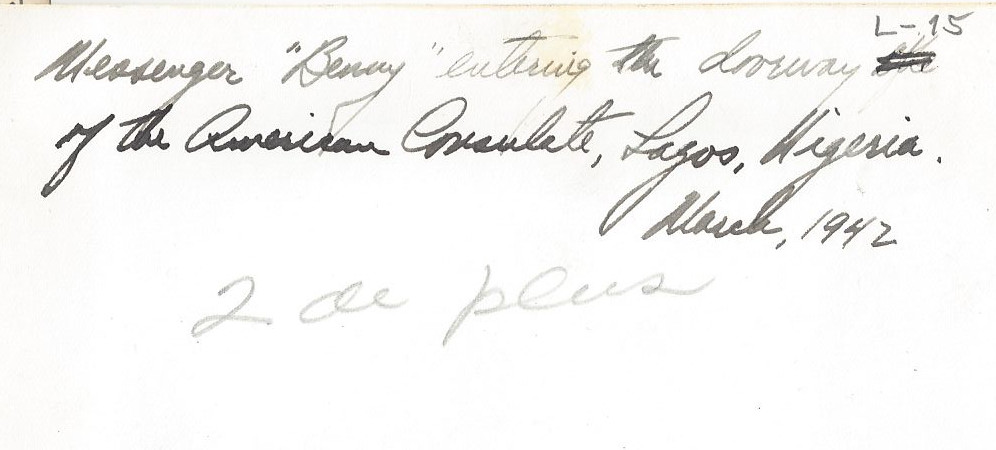 L-15
Messenger "Benny" entering the doorway
of the American Consulate, Lagos, Nigeria.
March, 1942
2 de plus